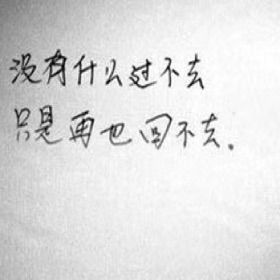 没有什么过不去
只是再也回不去.